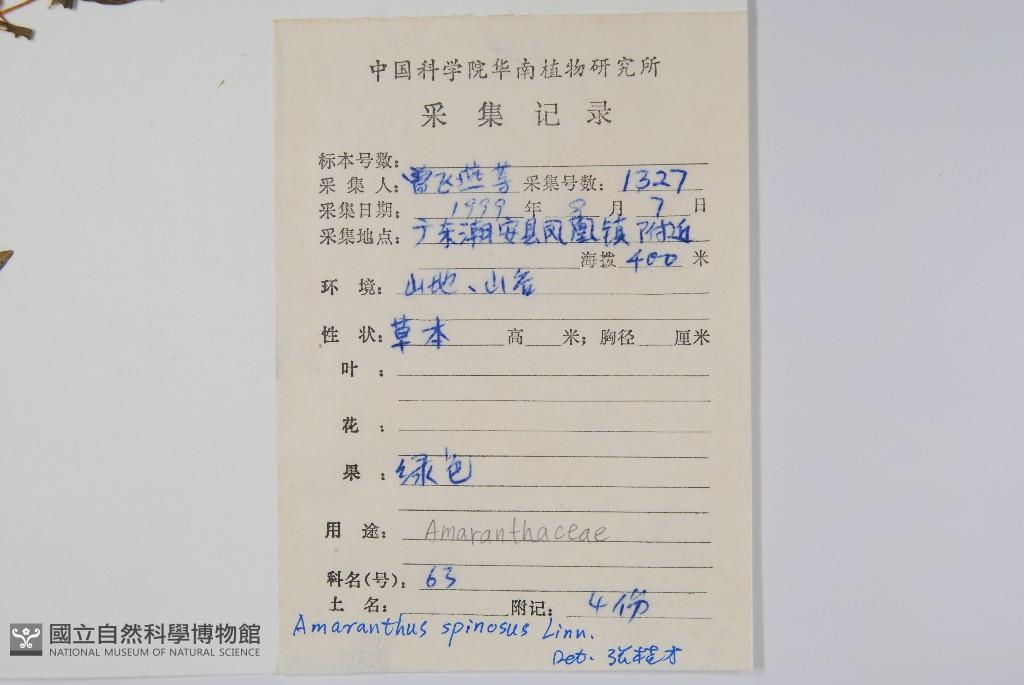 中国科学院华南植物研究所
采集记录
标本号数：
采集人：曾飞燕等 采集号数：1327
采集日期：1999年8月7日
采集地点：广东潮安县凤凰镇附近
海拨 400 米
环境：山地、山谷
性状：草本 高 米；胸径 厘米
叶：
花：
果：绿色
用途：Amaranthaceae
科名(号)：63
土名： 附记：4份
Amaranthus spinosus Linn.
Det. 张桂才
國立自然科學博物館
NATIONAL MUSEUM OF NATURAL SCIENCE